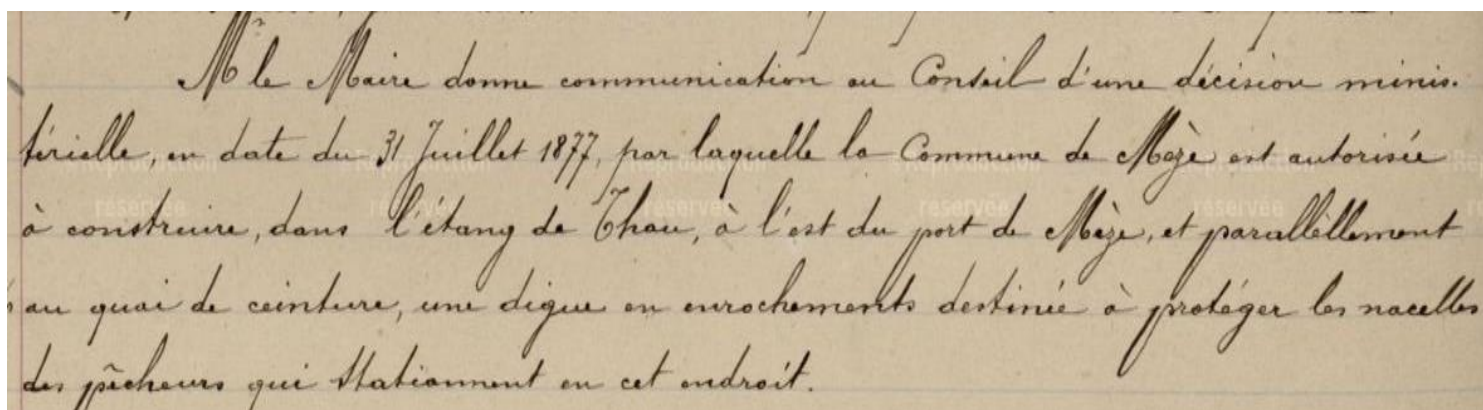 Mr le Maire donne communication au Conseil d'une décision minis-
térielle, en date du 31 Juillet 1877, par laquelle la Commune de Mèze est autorisée
à construire, dans l'étang de Thau, à l'est du port de Mèze, et parallèllement
au quai de ceinture, une digue en enrochements destinée à protéger les nacelles
des pêcheurs qui stationnent en cet endroit.